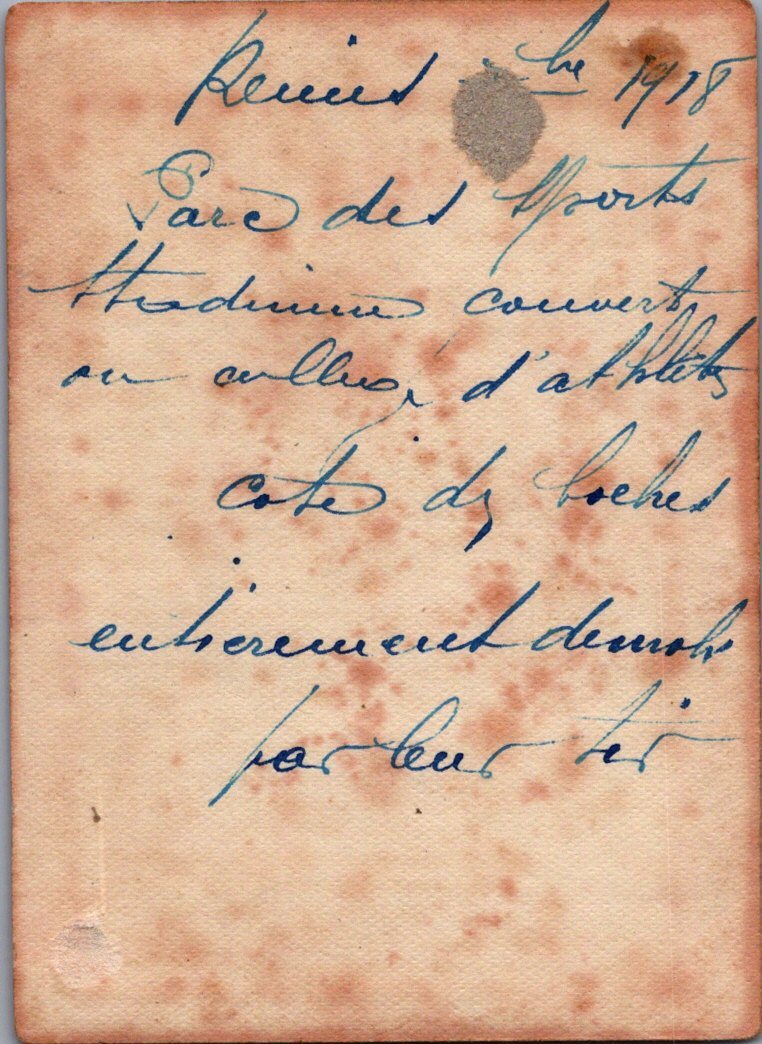 Reims bre 1918
Parc des Sports
Stadium couvert
ou college d'athletes
coté des boches
entierement demoli
par leur tir